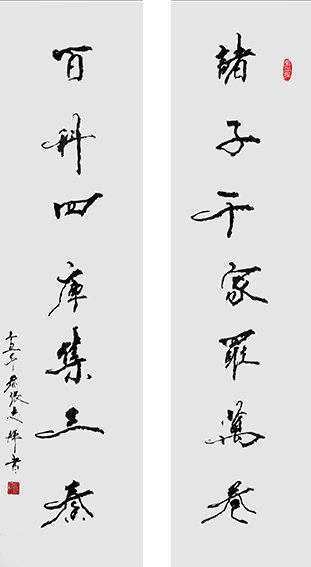 諸子千家羅萬卷
百科四庫集三秦